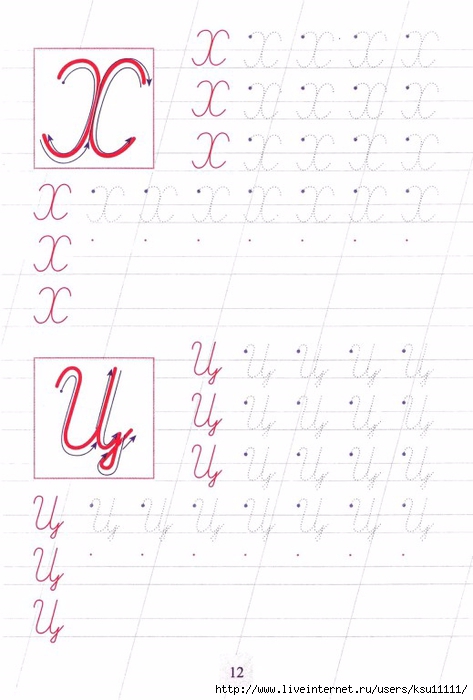 Х Х Х Х Х Х
Х Х Х Х Х
Х Х Х Х Х
Х Х Х Х Х Х Х Х
Х
Х
Ц Ц Ц Ц Ц Ц
Ц Ц Ц Ц Ц
Ц Ц Ц Ц Ц
Ц Ц Ц Ц Ц Ц Ц Ц
Ц
Ц
12
http://www.liveinternet.ru/users/ksu11111/